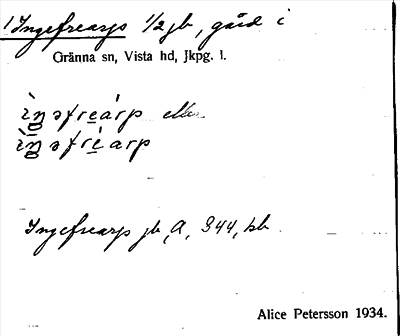 Ingefrearp 1/2 jb, gård i
Gränna sn, Vista hd, Jkpg. l.
ìŋəfreárp eller
ìŋəfrèarp
Ingefrearp jb, A, 344, kb
Alice Petersson 1934.